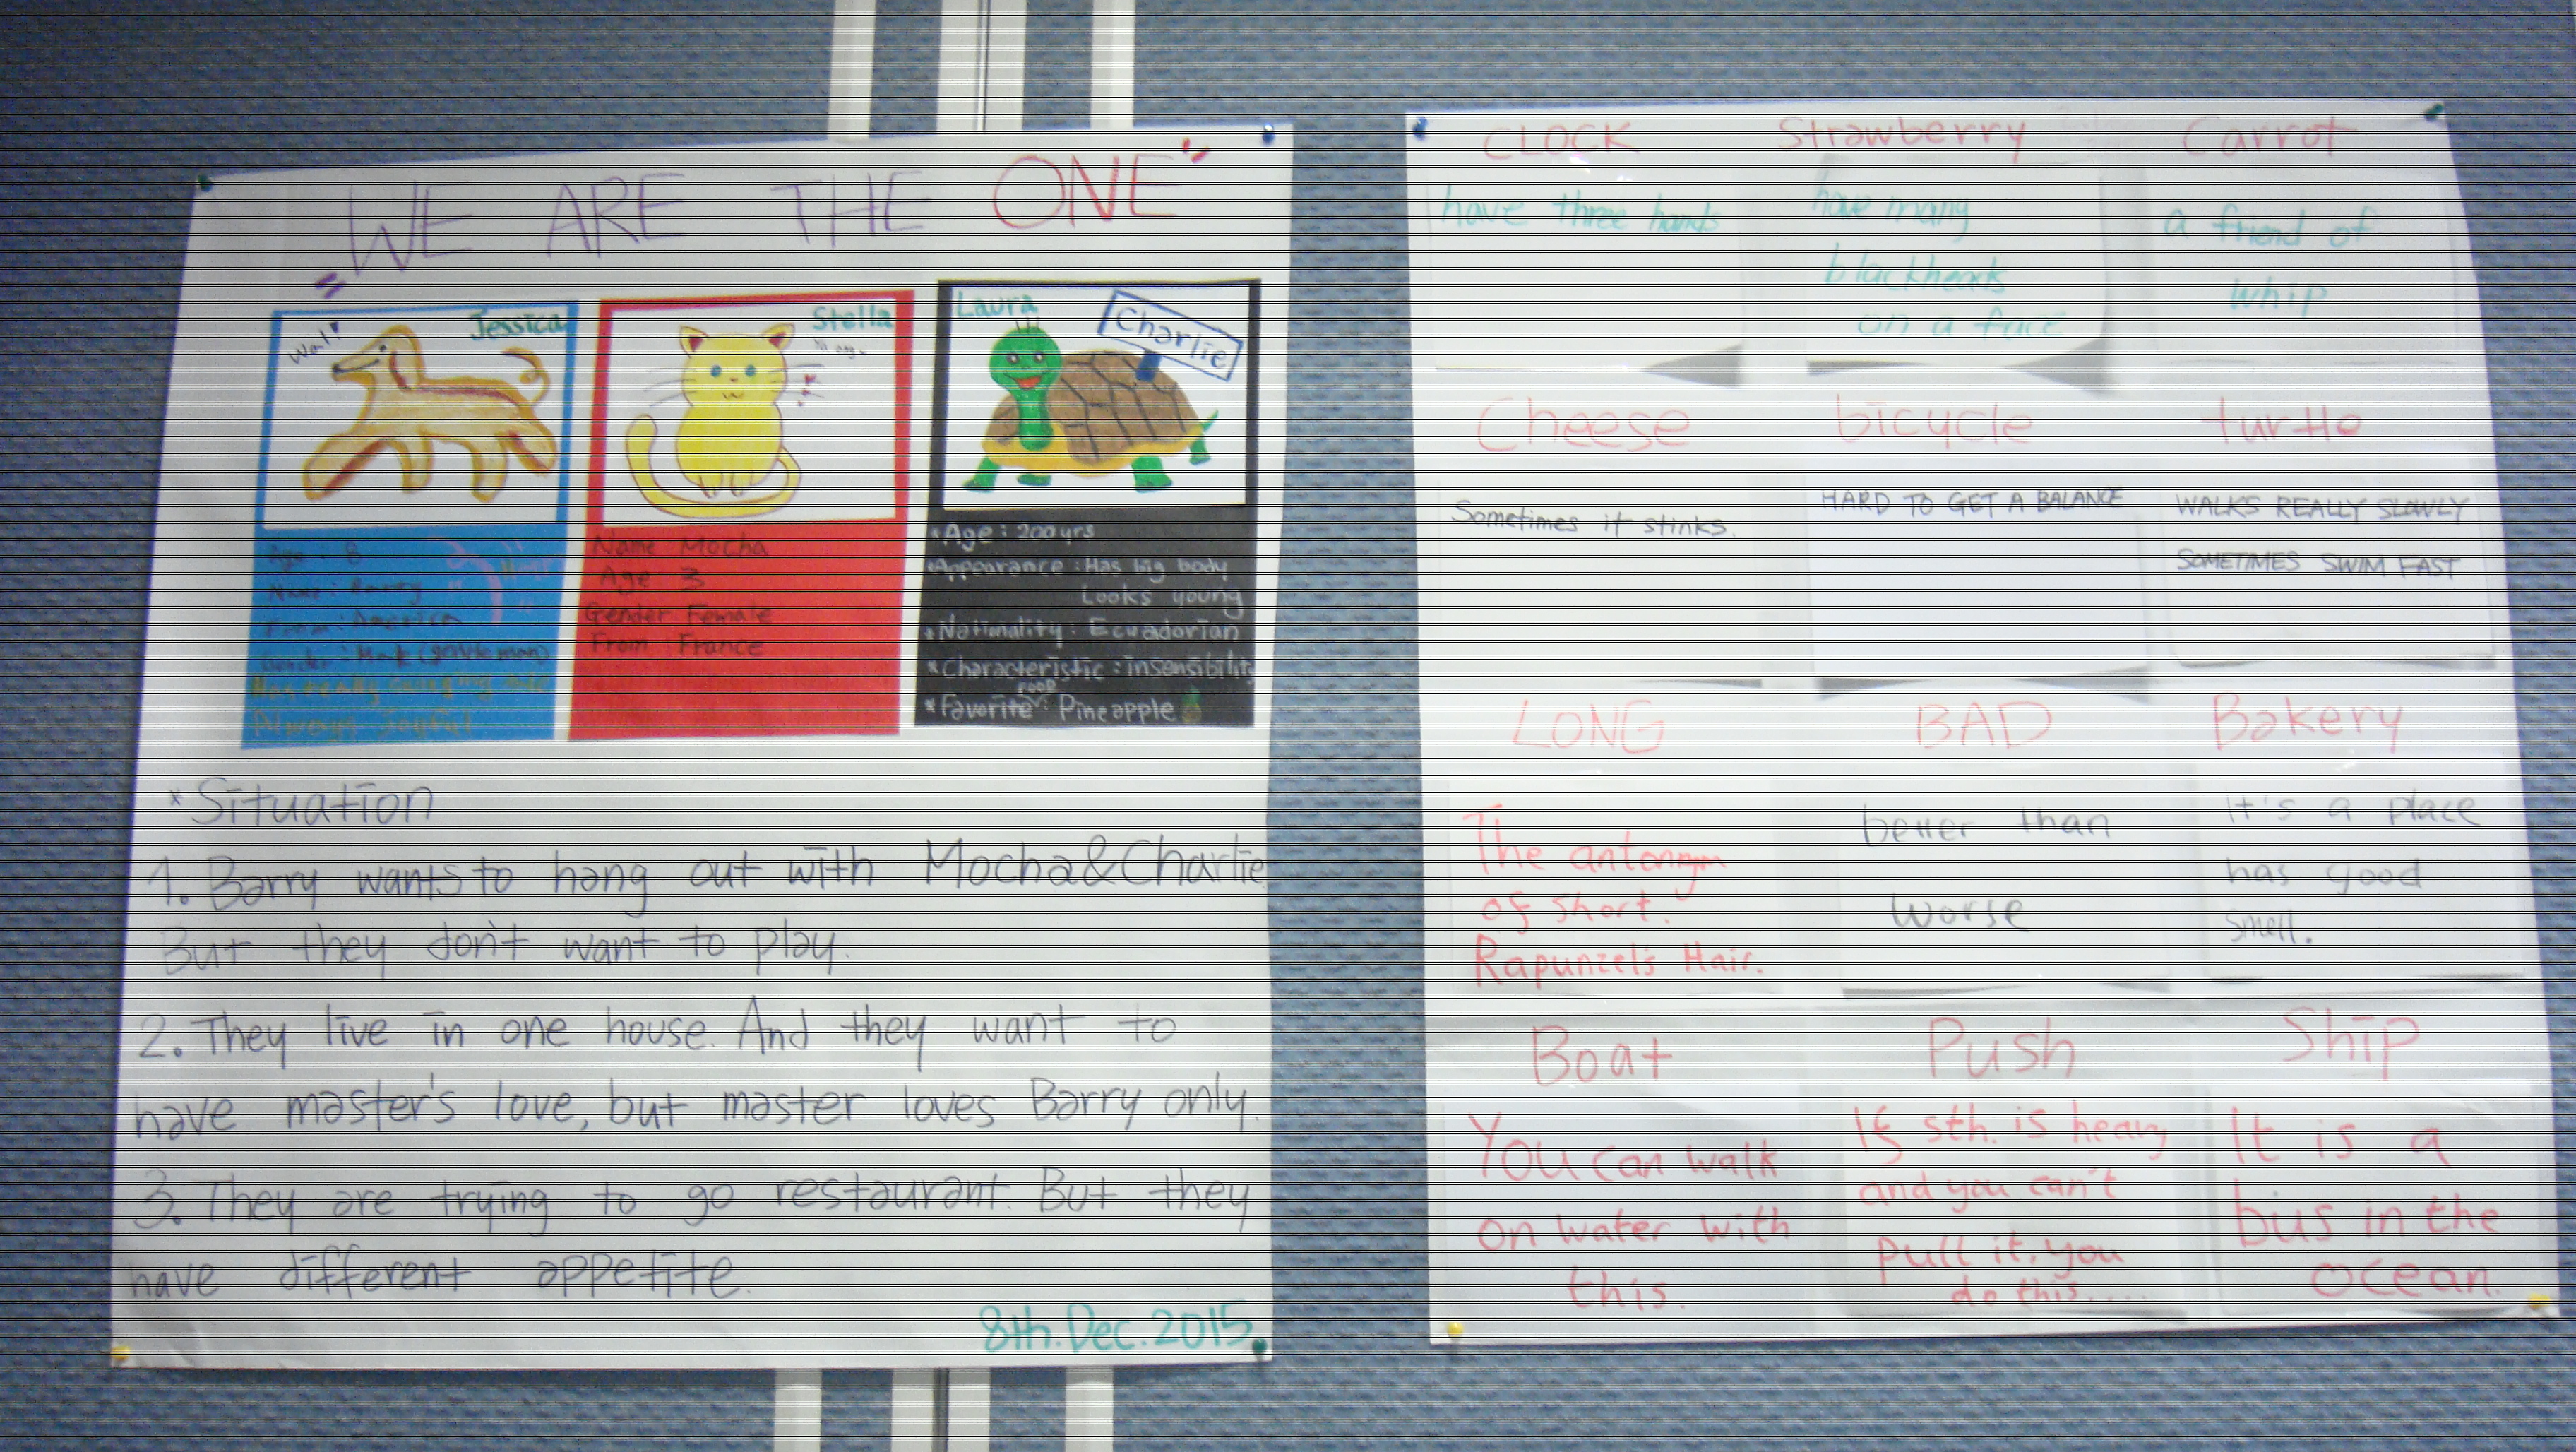 "WE ARE THE ONE"
Wal!
Jessica
Age : 8
Name : Barry
From : America
Always Joyful
Stella
Name Mocha
Age 3
Gender Female
From : France
Laura
Charlie
*Age : 200yrs
*Appearance : Has big body
Looks young
*Nationality : Ecuadorian
*Characteristic : insensibility
*Favorite food : Pineapple
*Situation
1. Barry wants to hang out with Mocha&Charlie
But they don't want to play.
2. They live in one house. And they want to
have master's love, but master loves Barry only.
3. They are trying to go restaurant. But they
have different appetite.
8th.Dec.2015
CLOCK
have three hands
Strawberry
have many
blackheads
on a face
Carrot
a friend of
whip
Cheese
Sometimes it stinks.
bicycle
HARD TO GET A BALANCE
turtle
WALKS REALLY SLOWLY
SOMETIMES SWIM FAST
LONG
The antonym
of short.
Rapunzel's Hair.
BAD
better than
worse
Bakery
It's a place
has good
smell.
Boat
You can walk
on water with
this.
Push
If sth. is heavy
and you can't
pull it, you
do this.....
Ship
It is a
bus in the
ocean.